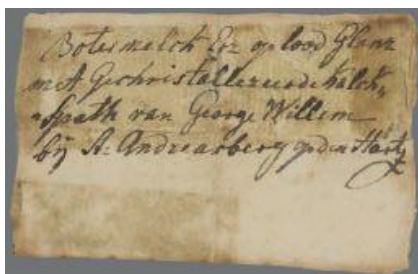 Botermelck Erz op lood Glanz
met Gechristallezeerde kalck„
„Spath van George Willem
bÿ St: Andreasberg op den Hartz